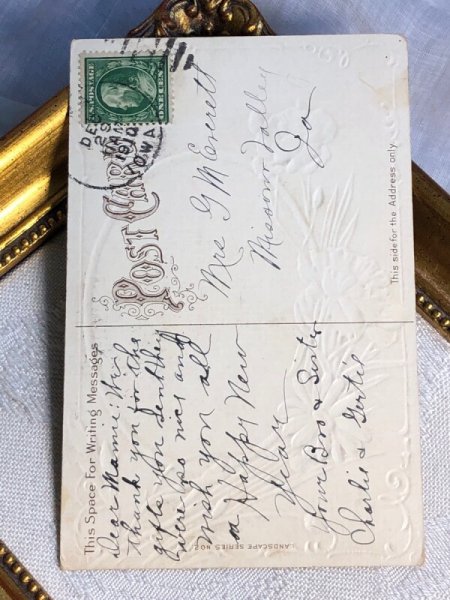 This Space For Writing Messages
Dear Mamie: Will
thank you for the
gifts you sent they
were two nice and
wish you all
a Happy New
Year
Your Bro & Sister
Charlie & Gertie
LANDSCAPE SERIES NO2
POST CARD
U.S. POSTAGE
ONE CENT
DE
1910
IOWA
Mrs G M Everett
Missouri Valley
Ia
This side for the Address only.